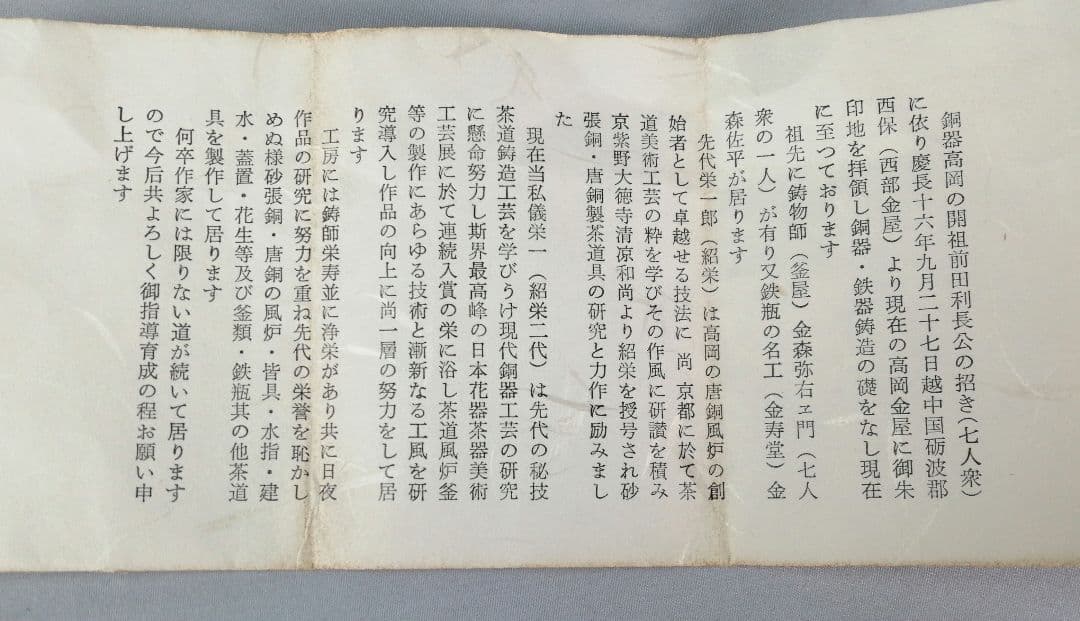 銅器高岡の開祖前田利長公の招き（七人衆）
に依り慶長十六年九月二十七日越中国砺波郡
西保（西部金屋）より現在の高岡金屋に御朱
印地を拝領し銅器・鉄器鋳造の礎をなし現在
に至つております
祖先に鋳物師（釜屋）金森弥右ヱ門（七人
衆の一人）が有り又鉄瓶の名工（金寿堂）金
森佐平が居ります
先代栄一郎（紹栄）は高岡の唐銅風炉の創
始者として卓越せる技法に 尚 京都に於て茶
道美術工芸の粋を学びその作風に研讃を積み
京紫野大徳寺清凉和尚より紹栄を授号され砂
張銅・唐銅製茶道具の研究と力作に励みまし
た
現在当私儀栄一（紹栄二代）は先代の秘技
茶道鋳造工芸を学びうけ現代銅器工芸の研究
に懸命努力し斯界最高峰の日本花器茶器美術
工芸展に於て連続入賞の栄に浴し茶道風炉釜
等の製作にあらゆる技術と漸新なる工風を研
究導入し作品の向上に尚一層の努力をして居
ります
工房には鋳師栄寿並に浄栄があり共に日夜
作品の研究に努力を重ね先代の栄誉を恥かし
めぬ様砂張銅・唐銅の風炉・皆具・水指・建
水・蓋置・花生等及び釜類・鉄瓶其の他茶道
具を製作して居ります
何卒作家には限りない道が続いて居ります
ので今后共よろしく御指導育成の程お願い申
し上げます